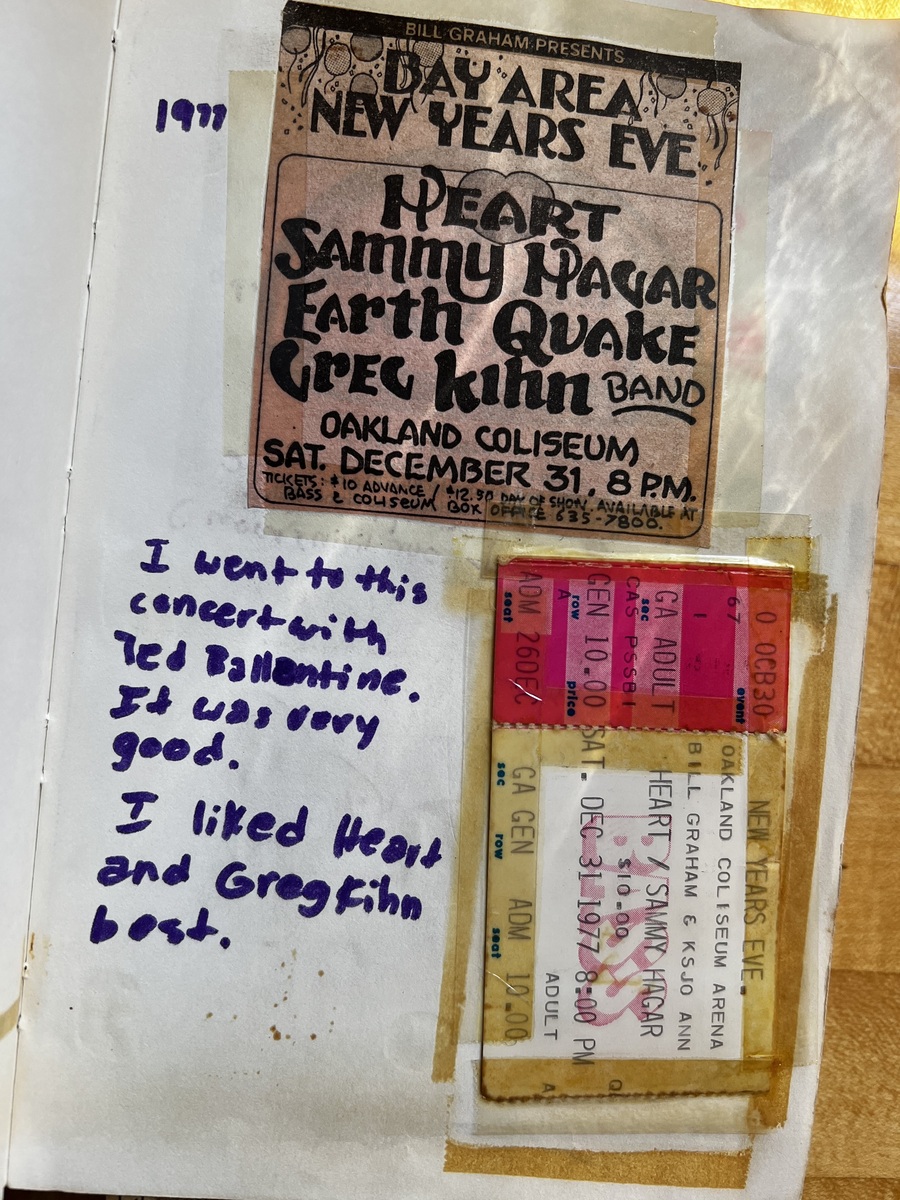 1977
BILL GRAHAM PRESENTS
BAY AREA
NEW YEARS EVE
HEART
SAMMY HAGAR
EARTH QUAKE
GREG KIHN BAND
OAKLAND COLISEUM
SAT. DECEMBER 31, 8 P.M.
TICKETS: $10 ADVANCE / $12.50 DAY OF SHOW. AVAILABLE AT
BASS & COLISEUM BOX OFFICE 635-7800.
I went to this
concert with
Ted Ballentine.
It was very
good.
I liked Heart
and Greg Kihn
best.
O OCB30
event
67
1
GA ADULT
sec
CAS PSSB1
row
A
GEN 10.00
price
ADM 26DEC
seat
NEW YEARS EVE.
OAKLAND COLISEUM ARENA
BILL GRAHAM & KSJO ANN
HEART / SAMMY HAGAR
$10.00
BASS
SAT. DEC 31 1977 8:00 PM
ADULT
GA GEN ADM 10.00
sec row seat